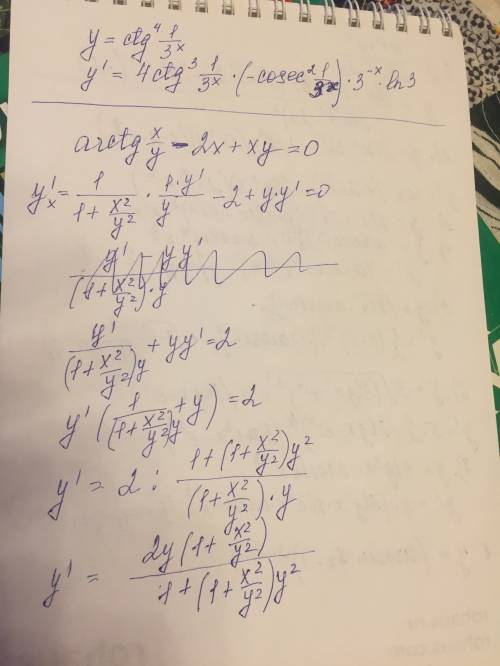 y = ctg⁴ 1/3ˣ
y' = 4ctg³ 1/3ˣ · (-cosec² 1/3ˣ) · 3⁻ˣ · ln3
arctg x/y - 2x + xy = 0
y'ₓ = 1/(1 + x²/y²) · 1·y'/y - 2 + y·y' = 0
y'/((1 + x²/y²)y) + yy' = 2
y' (1/((1 + x²/y²)y) + y) = 2
y' = 2 : (1 + (1 + x²/y²)y²)/((1 + x²/y²)·y)
y' = 2y(1 + x²/y²)/(1 + (1 + x²/y²)y²)